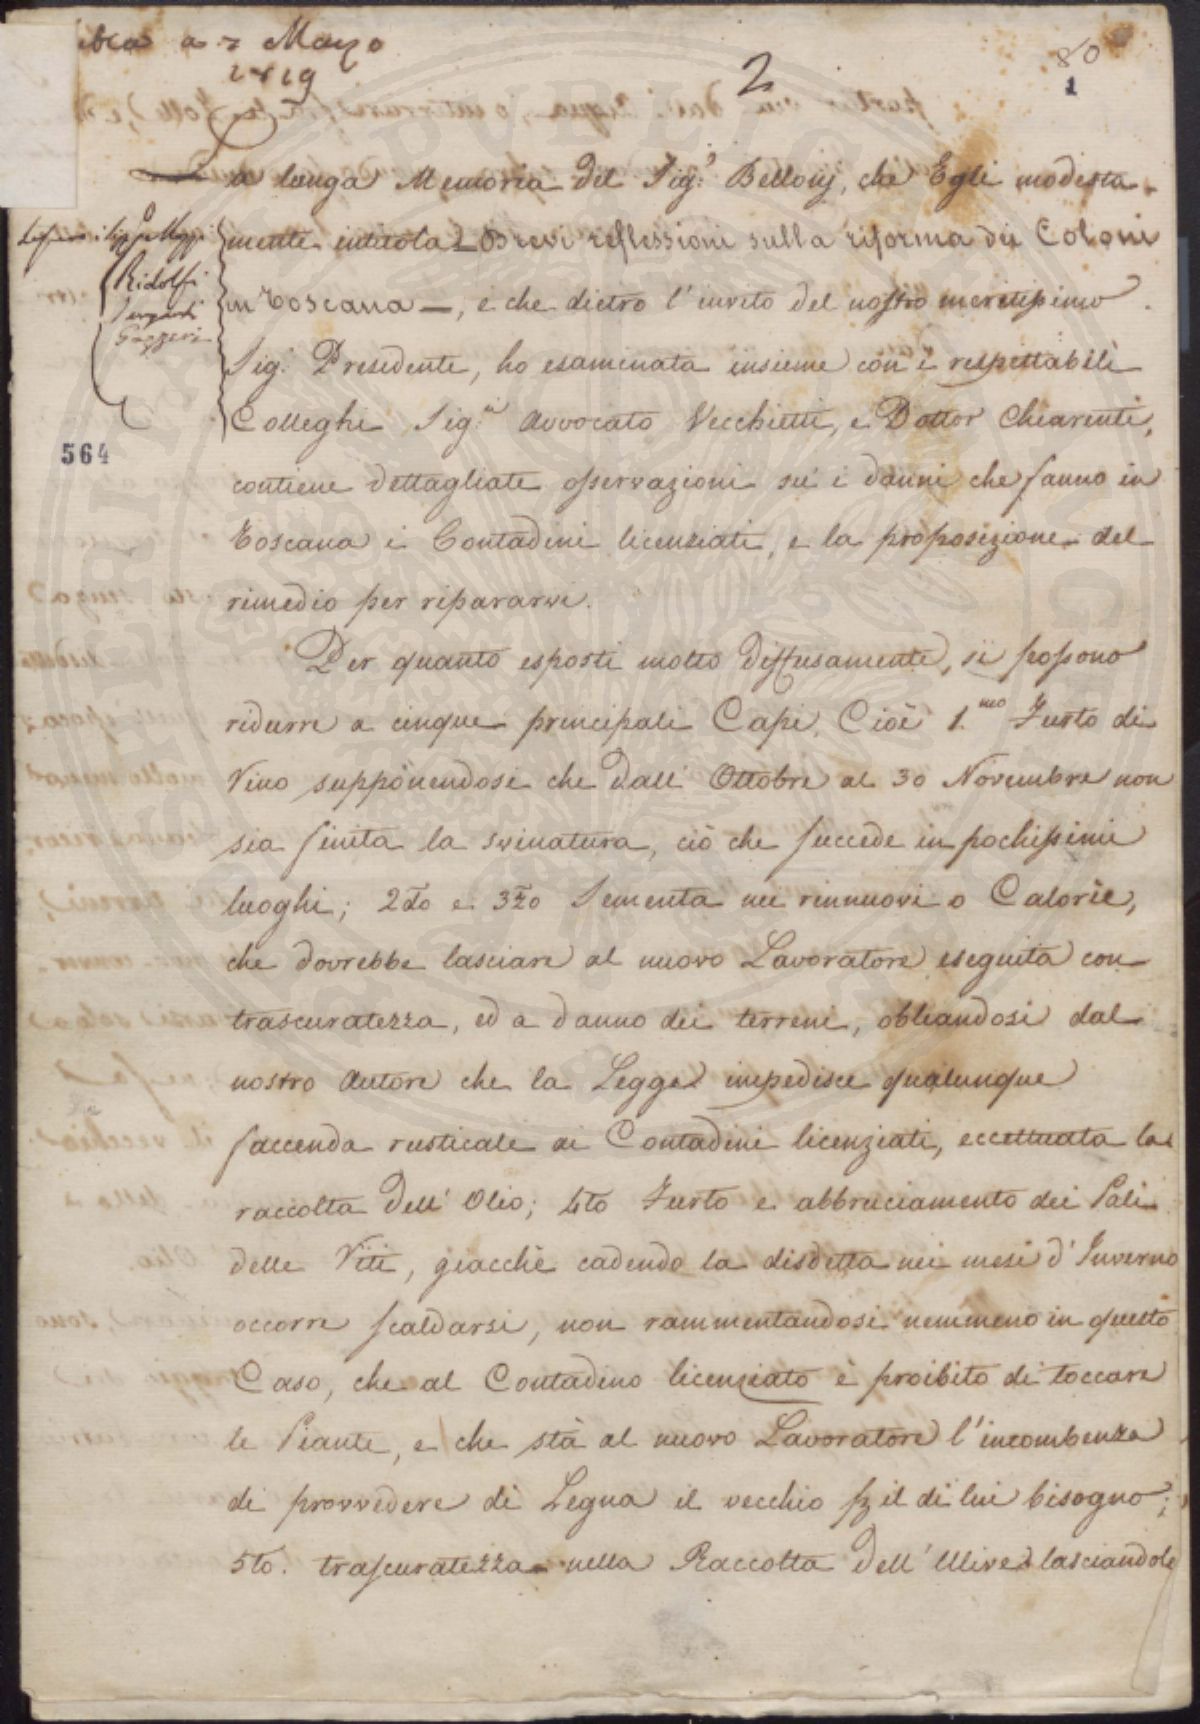 a 7 Marzo
1819
2
80
1
La lunga Memoria del Sig.r Bellonj, che Egli modesta-
mente intitola - Brevi reflessioni sulla riforma dei Coloni
in Toscana —, e che dietro l'invito del nostro meritissimo
Sig.r Presidente, ho esaminata insieme con i respettabili
Colleghi Sig.ri Avvocato Vecchietti, e Dottor Chiarenti,
contiene dettagliate osservazioni su i danni che fanno in
Toscana i Contadini licenziati, e la proposizione del
rimedio per ripararvi.
Ridolfi
Gazzeri
564
Per quanto esposti molto diffusamente, si possono
ridurre a cinque principali Capi, Cioè 1.mo Furto di
Vino supponendosi che dall' Ottobre al 30 Novembre non
sia finita la svinatura, ciò che succede in pochissimi
luoghi; 2do e 3zo Sementa nei rinnuovi o Calorìe,
che dovrebbe lasciare al nuovo Lavoratore eseguita con
trascuratezza, ed a danno dei terreni, obliandosi dal
nostro Autore che la Legge impedisce qualunque
faccenda rusticale ai Contadini licenziati, eccettuata la
raccolta dell' Olio; 4to Furto e abbruciamento dei Pali
delle Viti, giacchè cadendo la disdetta nei mesi d'Inverno
occorre scaldarsi, non rammentandosi nemmeno in questo
Caso, che al Contadino licenziato è proibito di toccare
le Piante, e che stà al nuovo Lavoratore l'incombenza
di provvedere di Legna il vecchio p il di lui bisogno;
5to. trascuratezza nella Raccolta dell' Ulive lasciandole